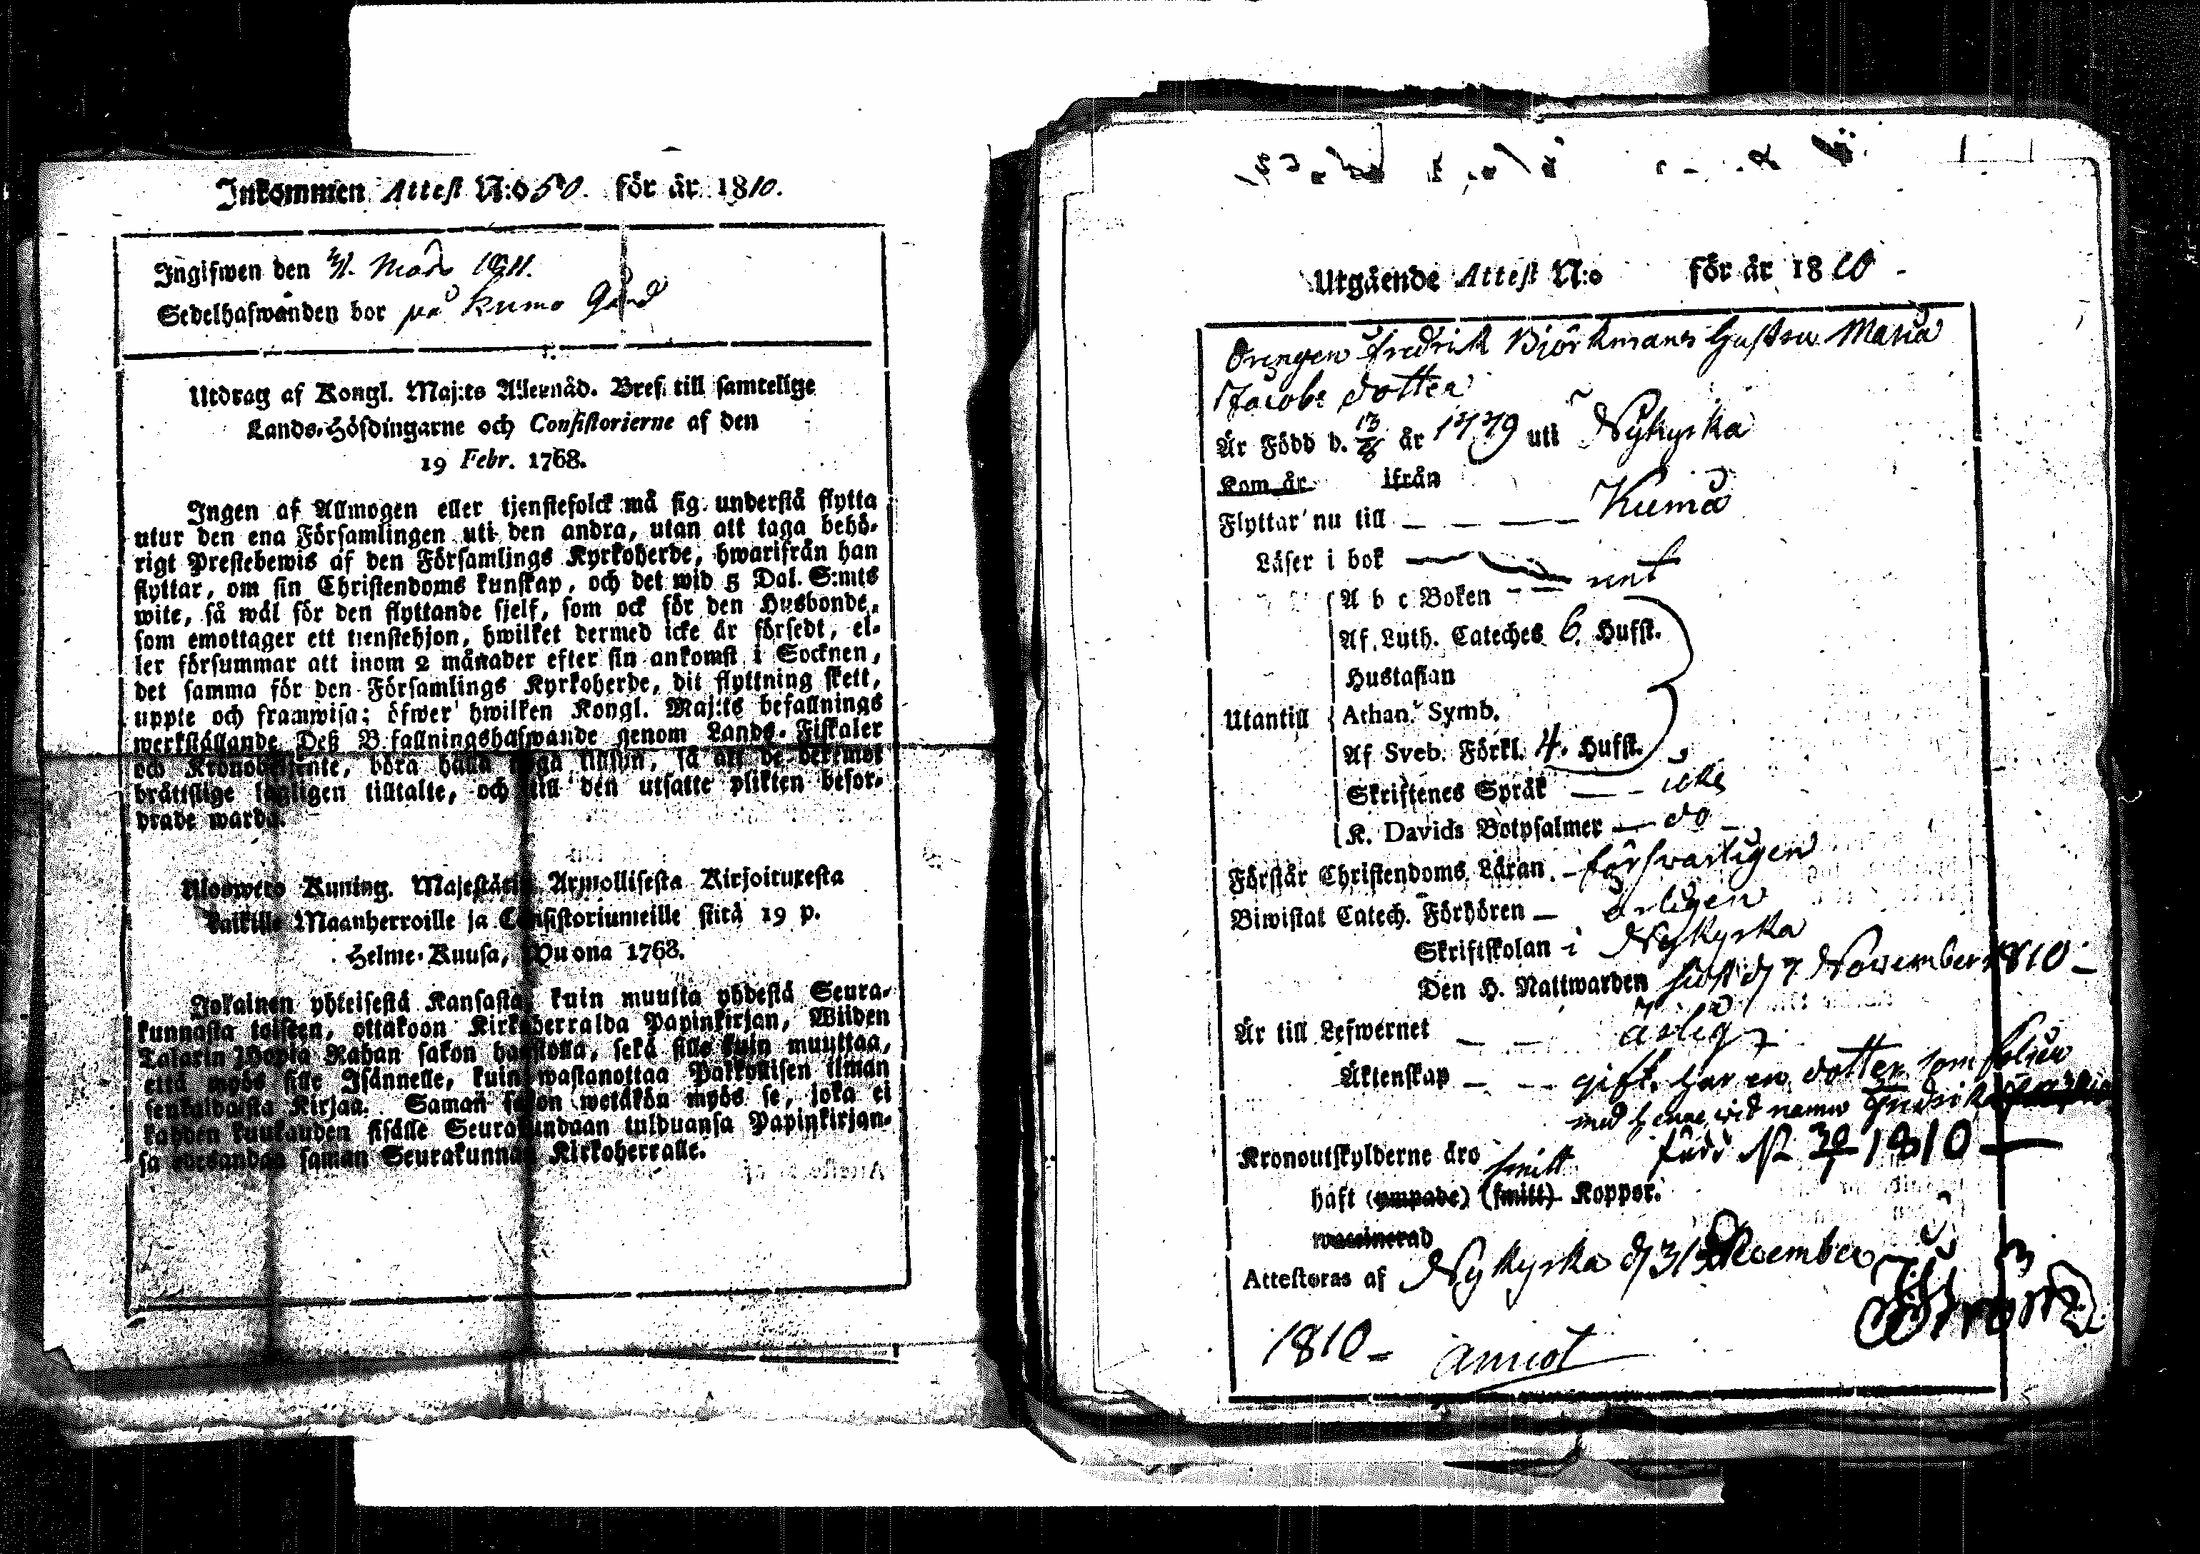 Inkommen Attest N:o 50. för år 1810.
Ingifwen den 3/1. Mars 1811.
Sedelhafwanden bor på Kumo Gård
Utdrag af Kongl. Maj:ts Allernåd. Bref till samtelige
Lands-Höfdingarne och Consistorierne af den
19 Febr. 1768.
Ingen af Allmogen eller tjenstefolck må sig understå flytta
utur den ena Församlingen uti den andra, utan att taga behö-
rigt Prestebewis af den Församlings Kyrkoherde, hwarifrån han
flyttar, om sin Christendoms kunskap, och det wid 5 Dal. S:mts
wite, så wäl för den flyttande sjelf, som ock för den Husbonde,
som emottager ett tienstehjon, hwilket dermed icke är försedt, el-
ler försummar att inom 2 månader efter sin ankomst i Socknen,
det samma för den Församlings Kyrkoherde, dit flyttning skett,
uppte och framwisa; öfwer hwilken Kongl. Maj:ts befallnings
werkställande Deß Befallningshafwande genom Lands-Fiskaler
och Kronobetjente, böra hålla noga tilsyn, så att de deremot
bråttslige lagligen tilltalte, och till den utsatte plikten befor-
drade warda.
Uloswero Kuning. Majestätin Armollisesta Kirjoituxesta
kaikille Maanherroille ja Consistoriumeille siitä 19 p.
Helme-Kuusa, Wuona 1768.
Jokainen yhteisestä Kansasta, kuin muutta yhdestä Seura-
kunnasta toiseen, ottakoon Kirkoherralda Papinkirjan, Wiiden
Talarin Hopia Rahan sakon haastolla, sekä sille kuin muuttaa,
että myös sille Isännelle, kuin wastanottaa Palkollisen ilman
senkaldaista Kirjaa. Saman sakon wetäkön myös se, joka ei
kahden kuukauden sisälle Seurakundaan tulduansa Papinkirjan-
sa edesandaa saman Seurakunnan Kirkoherralle.
Utgående Attest N:o för år 1810 -
Drengen Fredrik Björkmans hustru Maria
Jacobs dotter
Är Född d. 13/8 år 1779 uti Nykyrka
Kom år ifrån
Flyttar nu till Kumo
Läser i bok rent
A b c Boken
Af Luth. Cateches 6. Hufst.
Hustaflan
Utantill Athan. Symb.
Af Sveb. Förkl. 4. Hufst.
Skriftenes Språk icke
K. Davids Botpsalmer do
Förstår Christendoms Läran försvarligen
Biwistat Catech. Förhören ärligen
Skriftskolan i Nykyrka
Den H. Nattwarden sidst d 7 November 1810 -
Är till Lefwernet ärlig
Äktenskap gift, har en dotter som följer
med henne vid namn Fredrika
Kronoutskylderne äro född d 30/1 1810
haft (ympade) (smitt) smitt Koppor.
waccinerad
Attesteras af Nykyrka d 31 December
1810 -